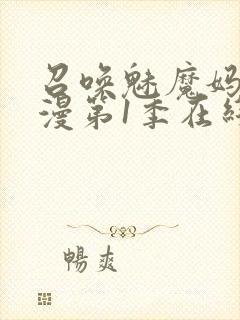 召唤魅魔妈
漫第1季在线
暢爽